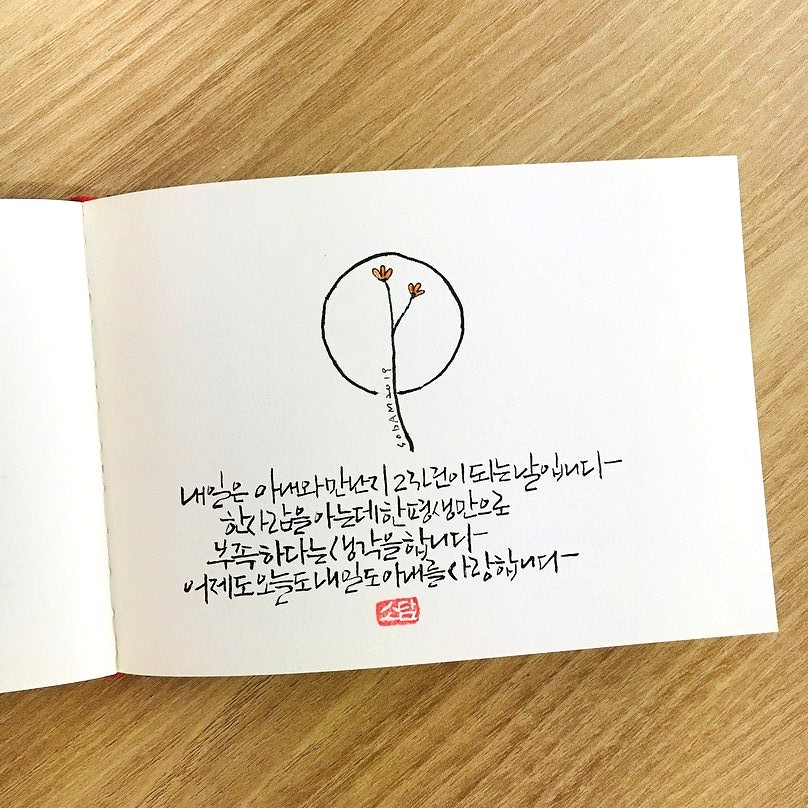 SOdAM2019
내일은 아내와 만난지 되는 날입니다
한 사람을 아는데 한 평생만으로
부족하다는 생각을 합니다
어제도 오늘도 내일도 아내를 사랑합니다
소담